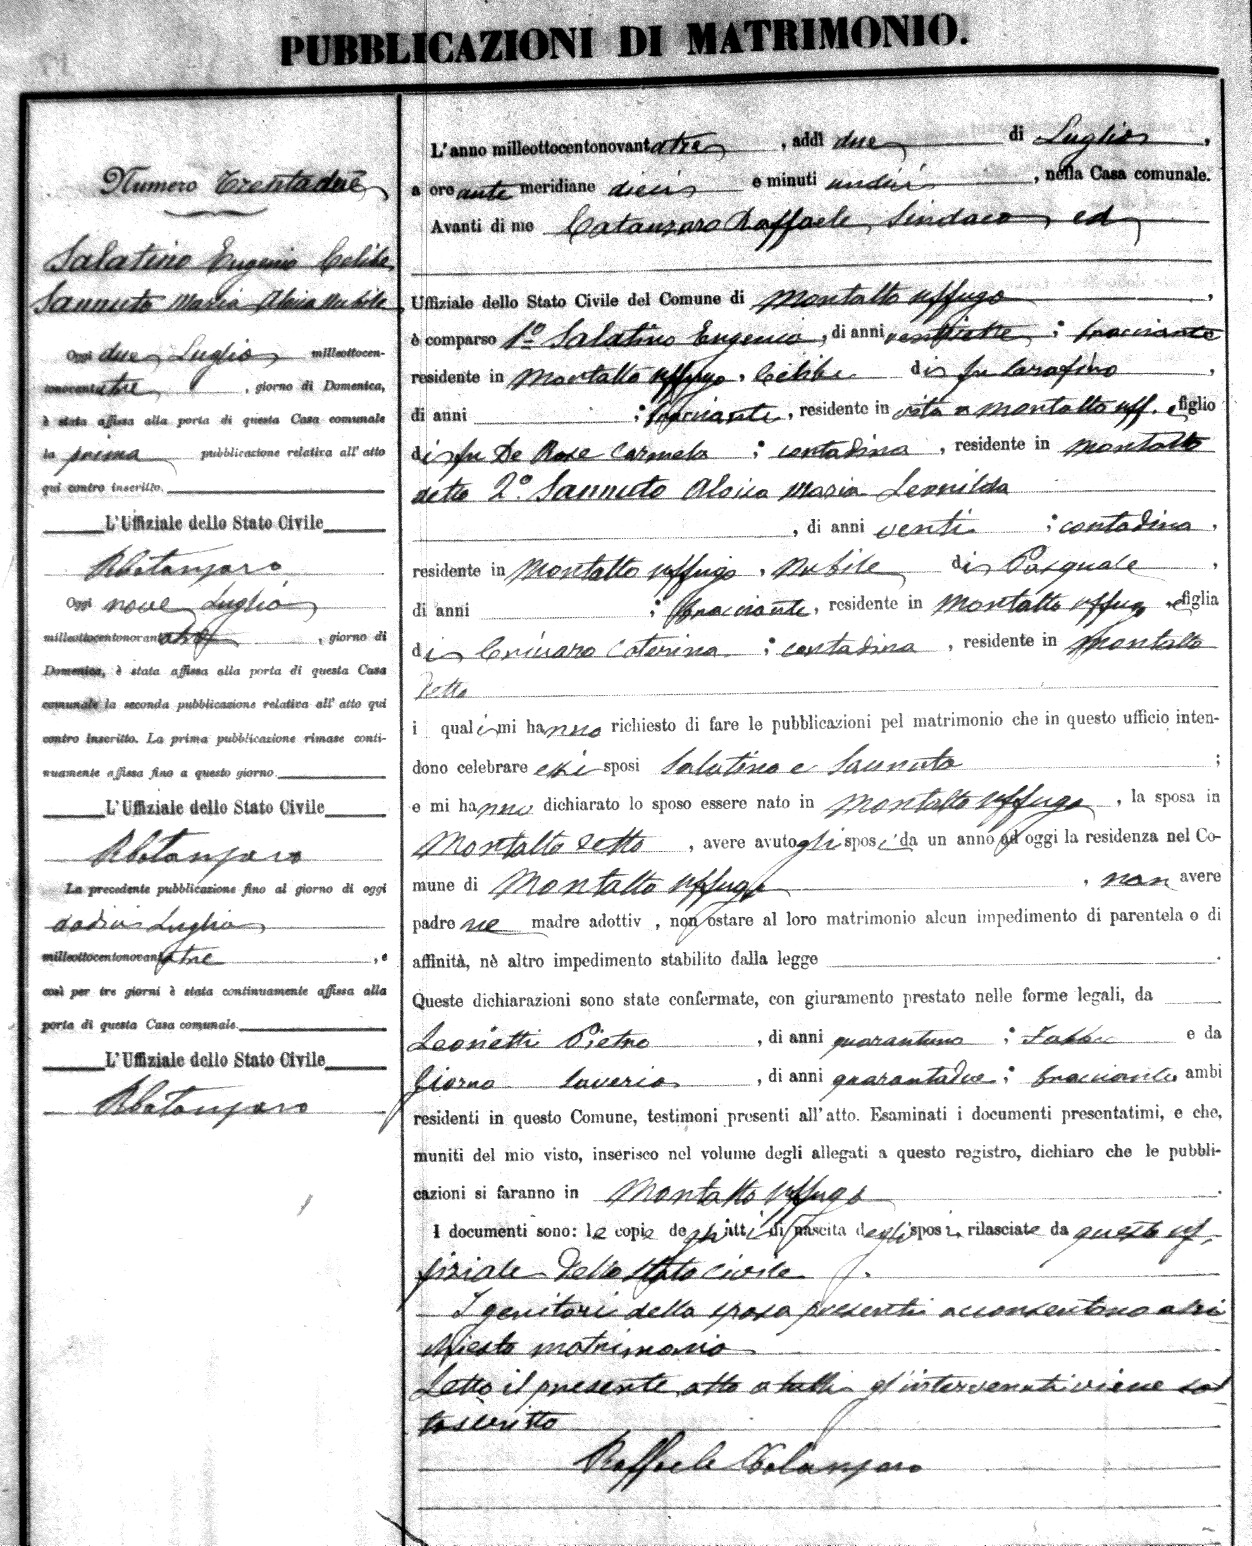 PUBBLICAZIONI DI MATRIMONIO.
Numero Trentadue
Salatino Eugenio Celibe
Sannuto Maria Aloisa Nubile
Oggi due Luglio milleottocen-
tonovantatre, giorno di Domenica,
è stata affissa alla porta di questa Casa comunale
la prima pubblicazione relativa all' atto
qui contro inscritto.
L'Uffiziale dello Stato Civile
RCatanzaro
Oggi nove Luglio
milleottocentonovantatre, giorno di
Domenica, è stata affissa alla porta di questa Casa
comunale la seconda pubblicazione relativa all' atto qui
contro inscritto. La prima pubblicazione rimase conti-
nuamente affissa fino a questo giorno.
L'Uffiziale dello Stato Civile
RCatanzaro
La precedente pubblicazione fino al giorno di oggi
dodici Luglio
milleottocentonovantatre, e
così per tre giorni è stata continuamente affissa alla
porta di questa Casa comunale.
L'Uffiziale dello Stato Civile
RCatanzaro
L'anno milleottocentonovantatre, addì due di Luglio,
a ore ante meridiane dieci e minuti undici, nella Casa comunale.
Avanti di me Catanzaro Raffaele Sindaco ed
Uffiziale dello Stato Civile del Comune di Montalto Uffugo,
è comparso 1º Salatino Eugenio, di anni ventisette; bracciante
residente in Montalto Uffugo, Celibe di fu Sarafino,
di anni ; bracciante, residente in vita a Montalto Uff. e figlio
di fu De Rose Carmela; contadina, residente in Montalto
detto 2º Sannuto Aloisa Maria Leonilda
, di anni venti; contadina,
residente in Montalto Uffugo, Nubile di Pasquale,
di anni ; bracciante, residente in Montalto Uffugo, e figlia
di Crivaro Caterina; contadina, residente in Montalto
detto
i quali mi hanno richiesto di fare le pubblicazioni pel matrimonio che in questo ufficio inten-
dono celebrare essi sposi Salatino e Sannuto;
e mi hanno dichiarato lo sposo essere nato in Montalto Uffugo, la sposa in
Montalto detto, avere avuto gli sposi da un anno ad oggi la residenza nel Co-
mune di Montalto Uffugo, non avere
padre ne madre adottiv , non ostare al loro matrimonio alcun impedimento di parentela o di
affinità, nè altro impedimento stabilito dalla legge.
Queste dichiarazioni sono state confermate, con giuramento prestato nelle forme legali, da
Leonetti Pietro, di anni quarantuno; e da
Giorno Saverio, di anni quarantadue; bracciante, ambi
residenti in questo Comune, testimoni presenti all'atto. Esaminati i documenti presentatimi, e che,
muniti del mio visto, inserisco nel volume degli allegati a questo registro, dichiaro che le pubbli-
cazioni si faranno in Montalto Uffugo.
I documenti sono: le copie degli atti di nascita degli sposi, rilasciate da questo uf-
fiziale dello stato civile.
I genitori della sposa presenti acconsentono al ri
chiesto matrimonio
Letto il presente atto a tutti gl'intervenuti viene sot
toscritto
Raffaele Catanzaro